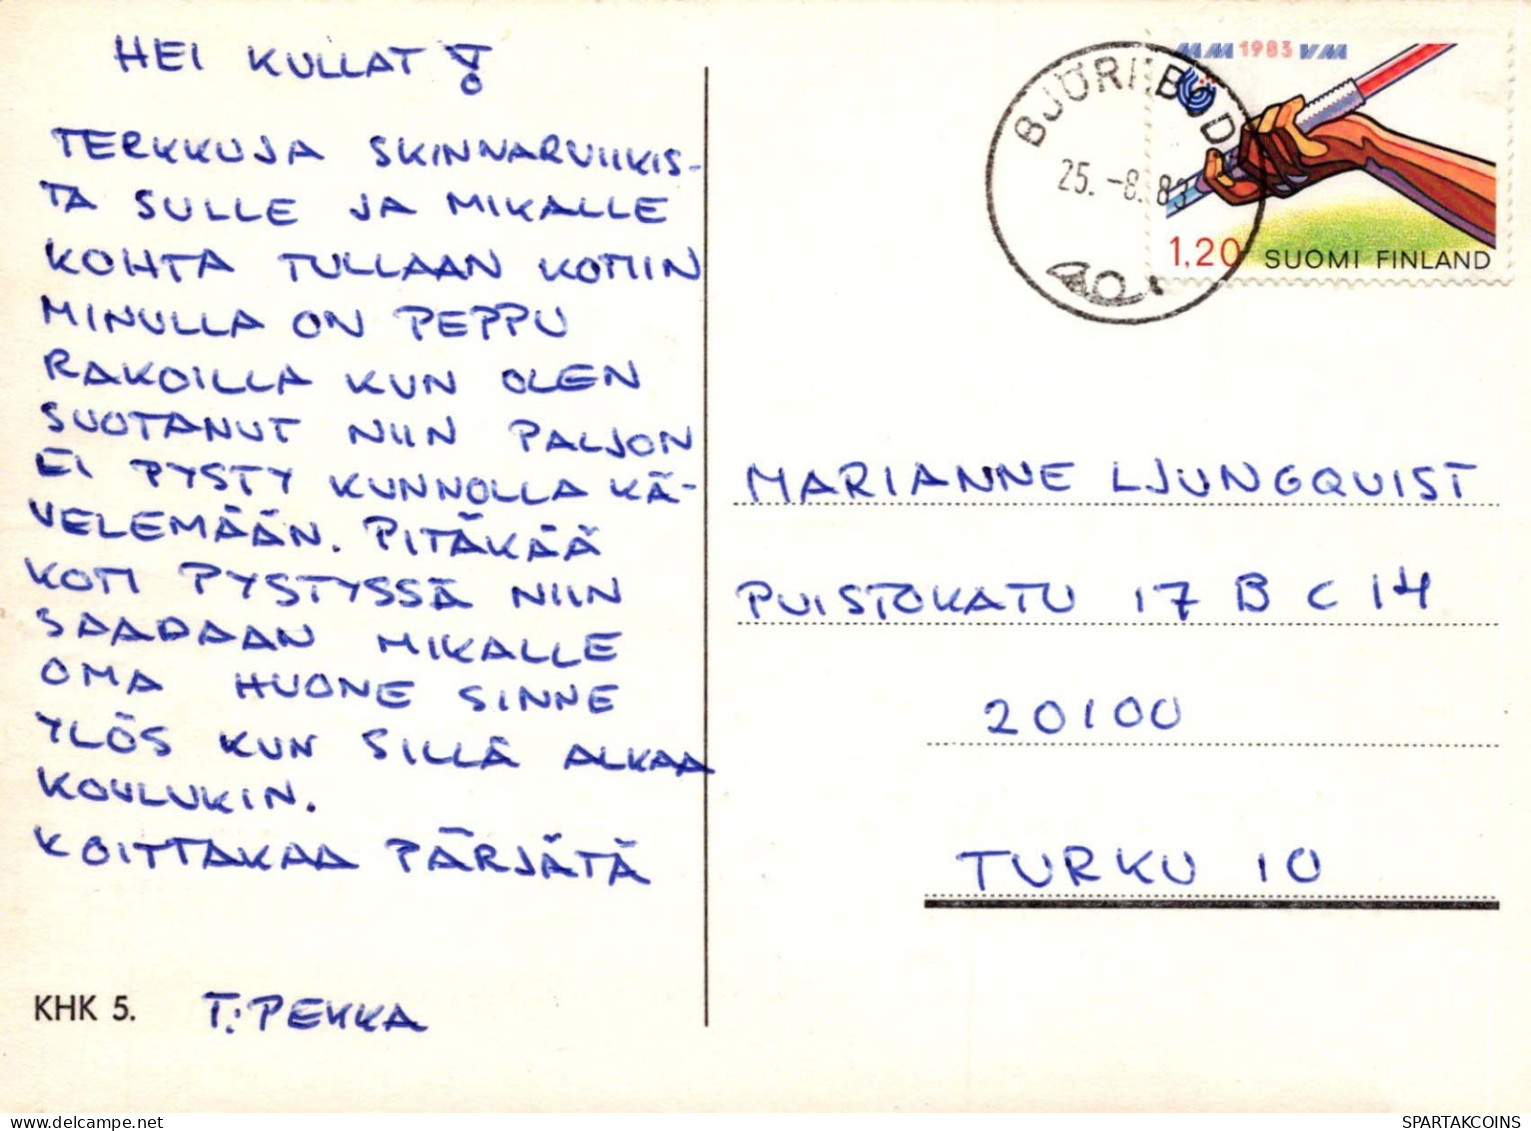 HEI KULLAT!
TERKKUJA SKINNARVIIKIS-
TA SULLE JA MIKALLE
KOHTA TULLAAN KOTIIN
MINULLA ON PEPPU
RAKOILLA KUN OLEN
SUOTANUT NIIN PALJON
EI PYSTY KUNNOLLA KÄ-
VELEMÄÄN. PITÄKÄÄ
KOTI PYSTYSSÄ NIIN
SAADAAN MIKALLE
OMA HUONE SINNE
YLÖS KUN SILLÄ ALKAA
KOULUKIN.
KOITTAKAA PÄRJÄTÄ
KHK 5. T: PEKKA
MM 1983 VM
25.-8.83
1,20 SUOMI FINLAND
MARIANNE LJUNGQUIST
PUISTOKATU 17 B C 14
20100
TURKU 10
SPARTAKCOINS